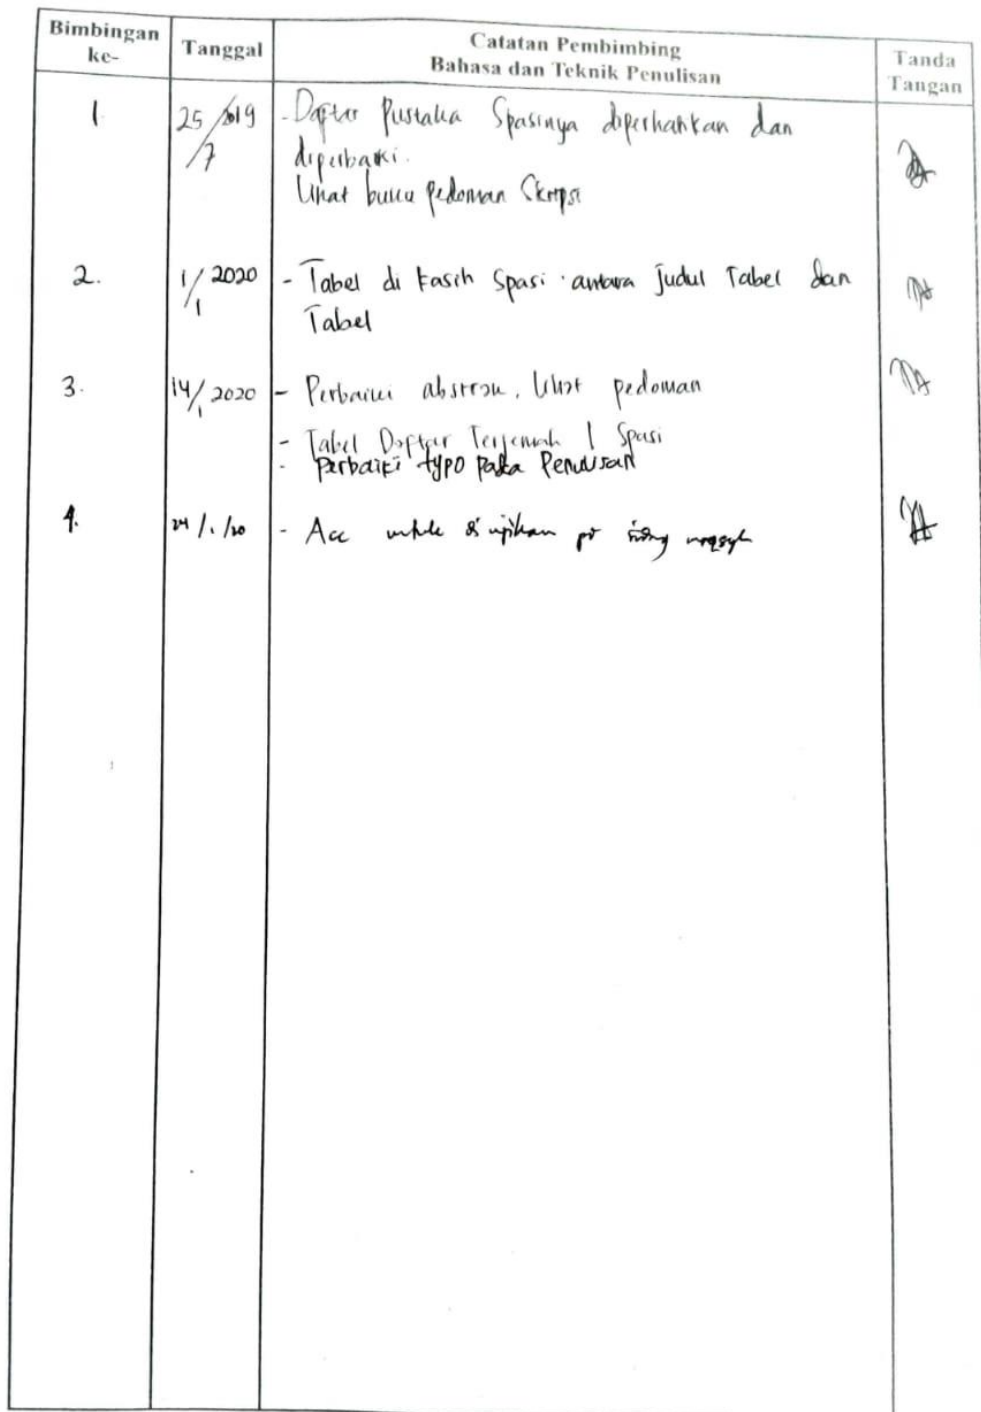 Bimbingan ke-
Tanggal
Catatan Pembimbing
Bahasa dan Teknik Penulisan
Tanda Tangan
1.
25/7 2019
- Daftar Pustaka Spasinya diperhatikan dan
diperbaiki.
Lihat buku pedoman Skripsi
2.
1/1 2020
- Tabel di kasih Spasi antara Judul Tabel dan
Tabel
3.
14/1 2020
- Perbaiki abstrak, Lihat pedoman
- Tabel Daftar Terjemah 1 Spasi
- Perbaiki typo pada Penulisan
4.
24/1/20
- Acc untuk di ujikan